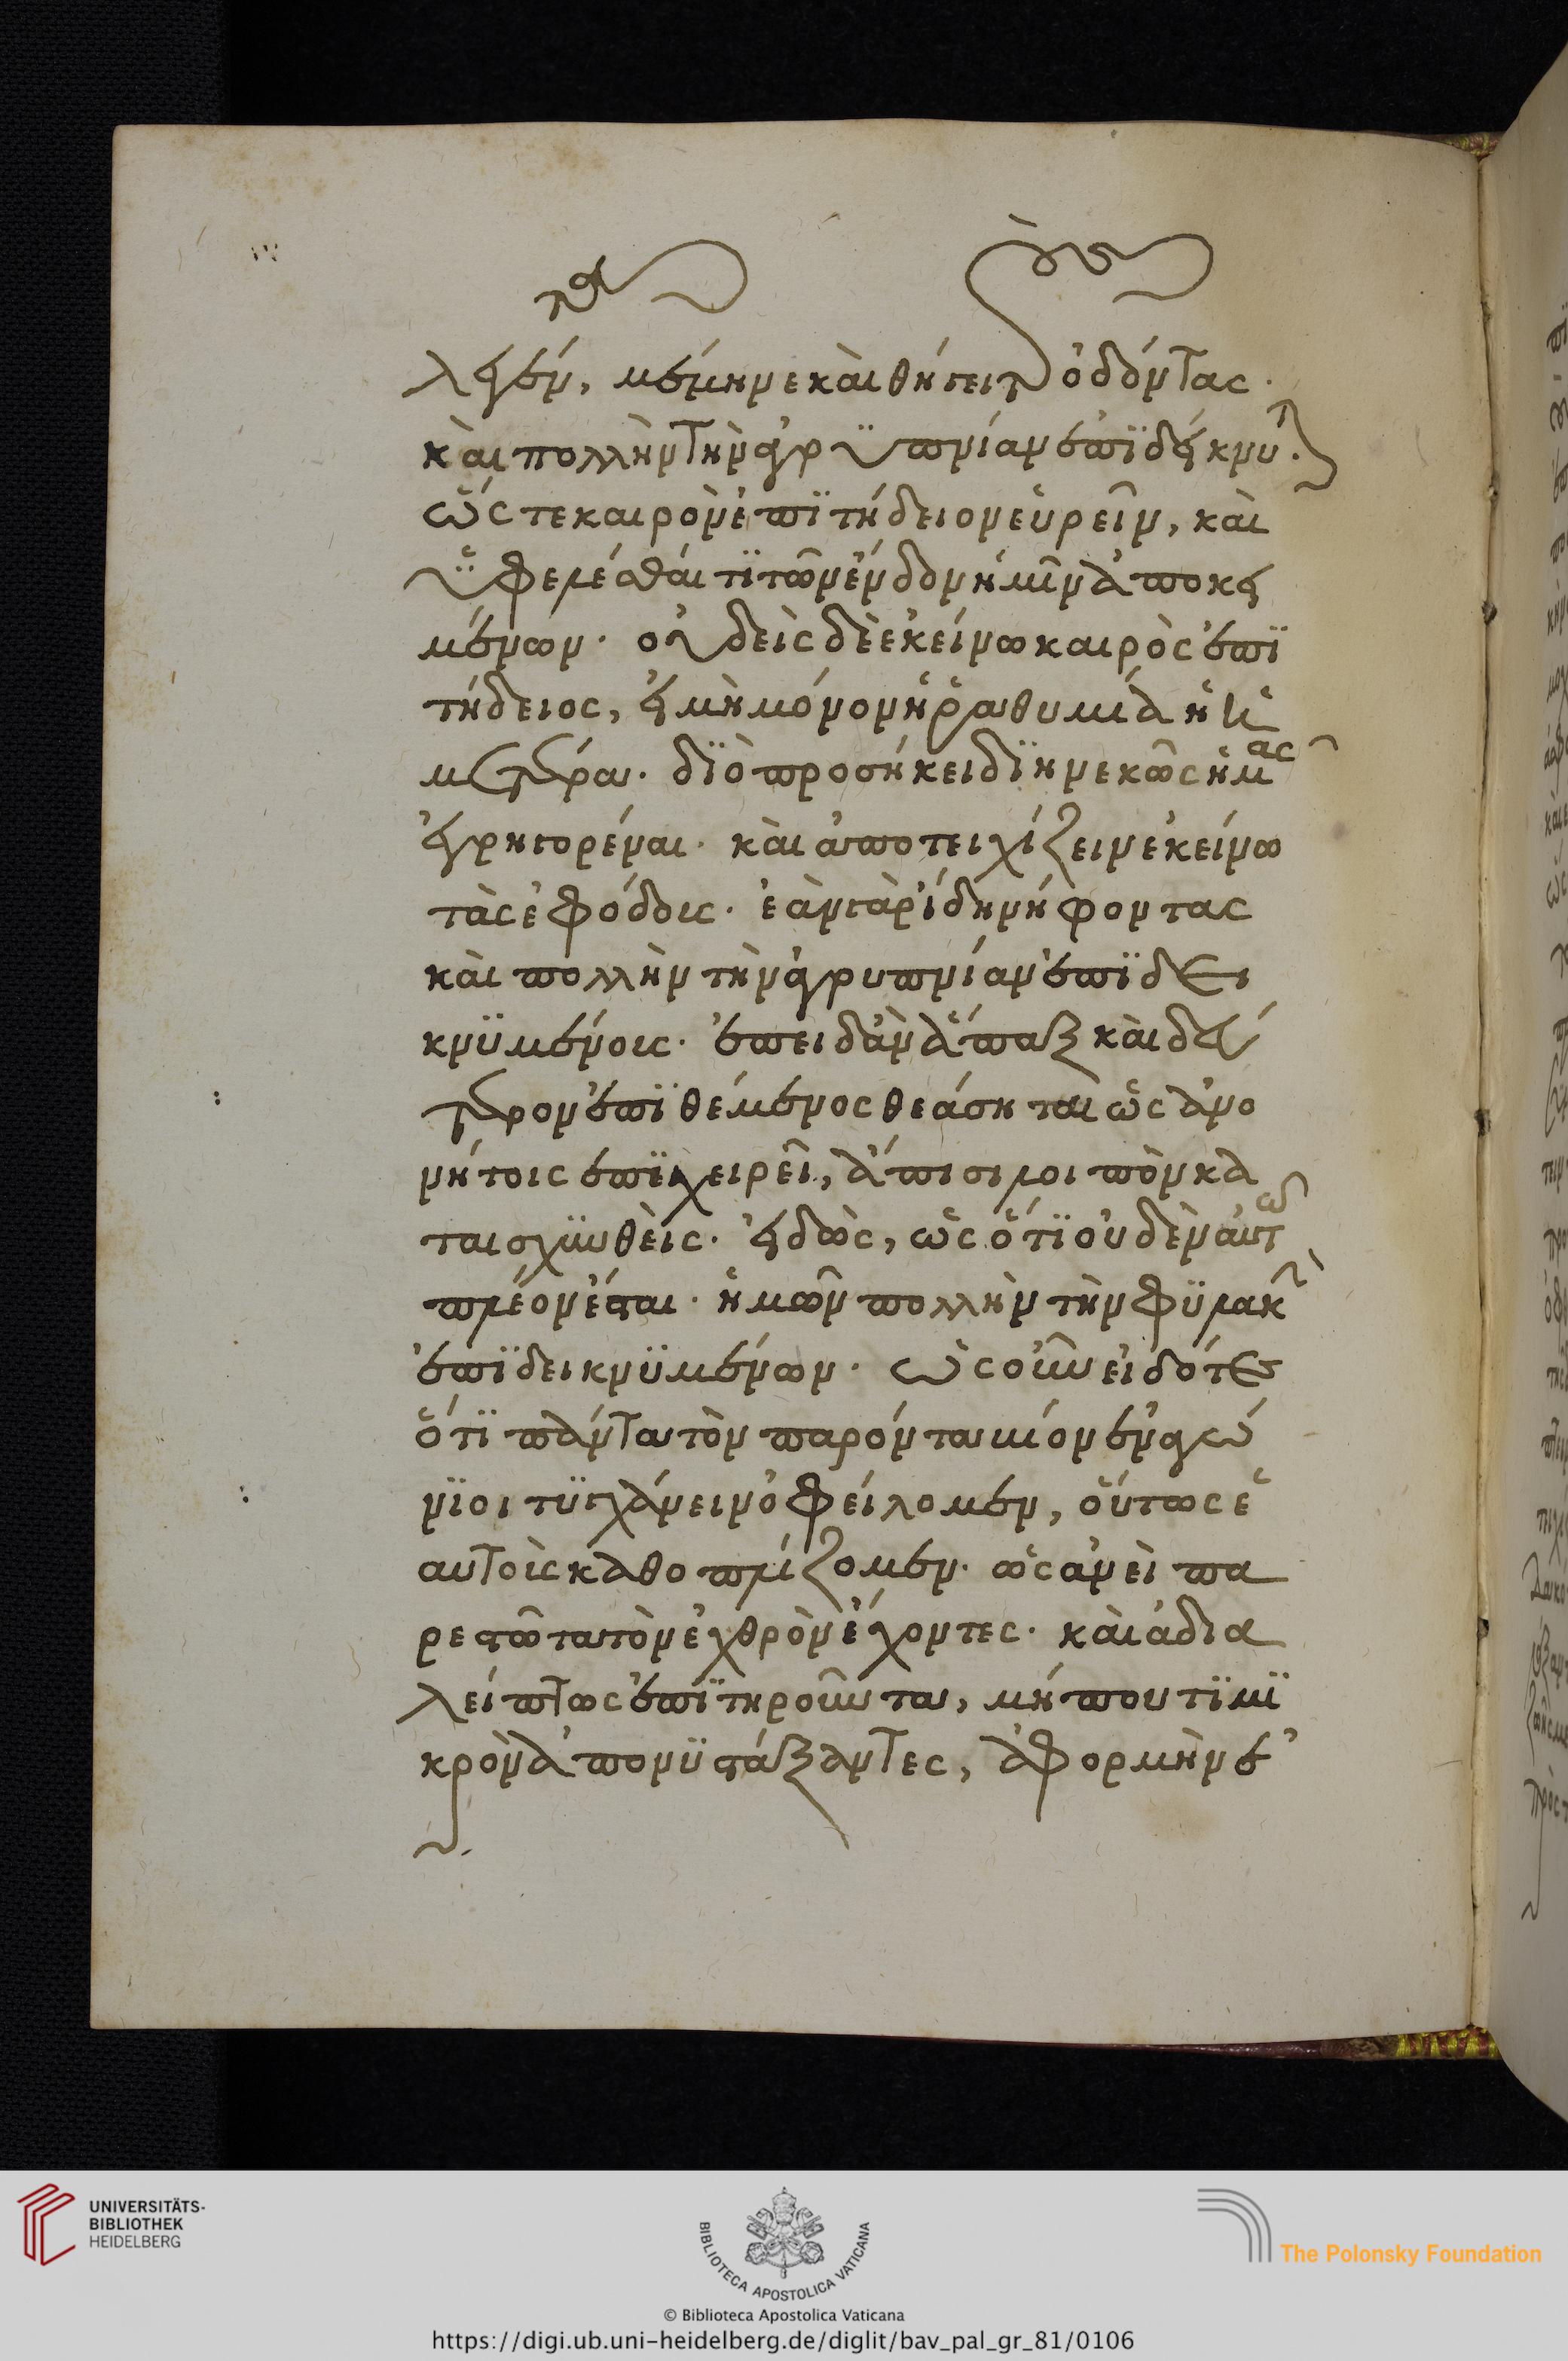 λειεν, μέμηνε καὶ θήγει τοὺς ὀδόντας.
καὶ πολλὴν τὴν ἀγρυπνίαν ἐπιδείκνυται.
ὥστε καιρὸν ἐπιτήδειον εὑρεῖν, καὶ
ὑφελέσθαι τι τῶν ἔνδον ἡμῖν ἀποκει
μένων. οὐδεὶς δὲ ἐκείνω καιρὸς ἐπι
τήδειος, εἰ μὴ μόνον ἡ ῥαθυμία ἡ ἡ
μετέρα. διὸ προσήκει διηνεκῶς ἡμᾶς
ἐγρηγορέναι. καὶ ἀποτειχίζειν ἐκείνω
τὰς ἐφόδους. ἐὰν γὰρ ἴδη νήφοντας
καὶ πολλὴν τὴν ἀγρυπνίαν ἐπιδει
κνυμένους. ἐπειδὰν ἅπαξ καὶ δεύ
τερον ἐπιθέμενος θεάσηται ὡς ἀνο
νήτοις ἐπιχειρεῖ, ἄπεισι λοιπὸν κα
ταισχυνθείς. εἰδὼς, ὡς ὅτι οὐδὲν αὐτῶ
πλέον ἔσται. ἡμῶν πολλὴν τὴν φυλακὴν
ἐπιδεικνυμένων. ὡς οὖν εἰδότες
ὅτι πάντα τὸν παρόντα βίον ἐναγώ
νιοι τυγχάνειν ὀφείλομεν, οὕτως ἑ
αυτοὺς καθοπλίζομεν. ὡς ἀνεὶ πα
ρεστῶτα τὸν ἐχθρὸν ἔχοντες. καὶ ἀδια
λείπτως ἐπιτηροῦντα, μήπου τι μι
κρὸν ἀπονυστάξαντες, ἀφορμὴν ἐ
UNIVERSITÄTS-
BIBLIOTHEK
HEIDELBERG
BIBLIOTECA APOSTOLICA VATICANA
The Polonsky Foundation
© Biblioteca Apostolica Vaticana
https://digi.ub.uni-heidelberg.de/diglit/bav_pal_gr_81/0106